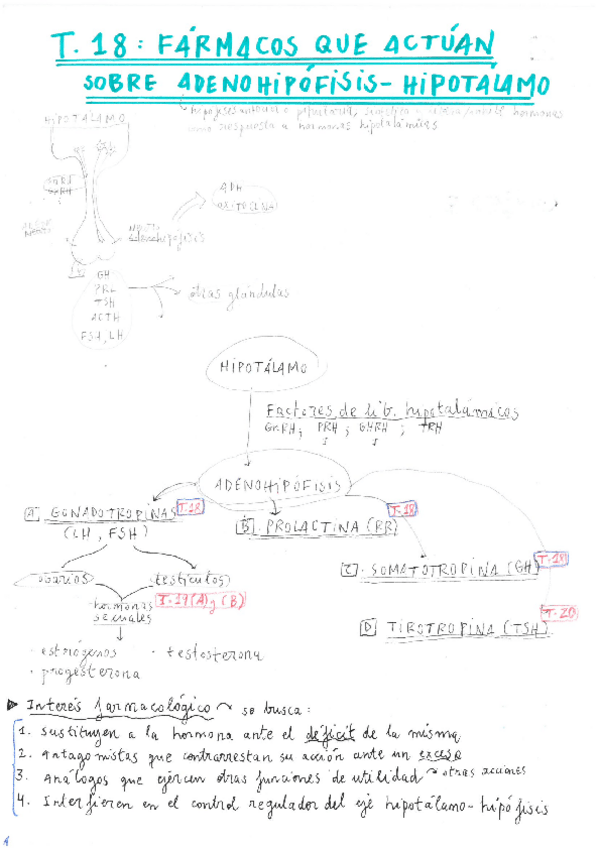 T. 18: FÁRMACOS QUE ACTÚAN
SOBRE ADENOHIPÓFISIS - HIPOTÁLAMO
como respuesta a hormonas hipotalámicas
HIPOTÁLAMO
ADH
OXITOCINA
GH
PRL
TSH
ACTH
FSH, LH
otras glándulas
HIPOTÁLAMO
Factores de lib. hipotalámicos
GnRH; PRH; GHRH; TRH
ADENOHIPÓFISIS
A GONADOTROPINAS T-18
(LH, FSH)
B. PROLACTINA (PR) T-18
C. SOMATOTROPINA (GH) T-18
D TIROTROPINA (TSH) T-20
ovarios testículos
hormonas sexuales T-17(A) y (B)
· estrógenos · testosterona
· progesterona
► Interés farmacológico ~ se busca:
1. Sustituyen a la hormona ante el déficit de la misma
2. Antagonistas que contrarrestan su acción ante un exceso
3. Análogos que ejercen otras funciones de utilidad ~ otras acciones
4. Interfieren en el control regulador del eje hipotálamo-hipófisis